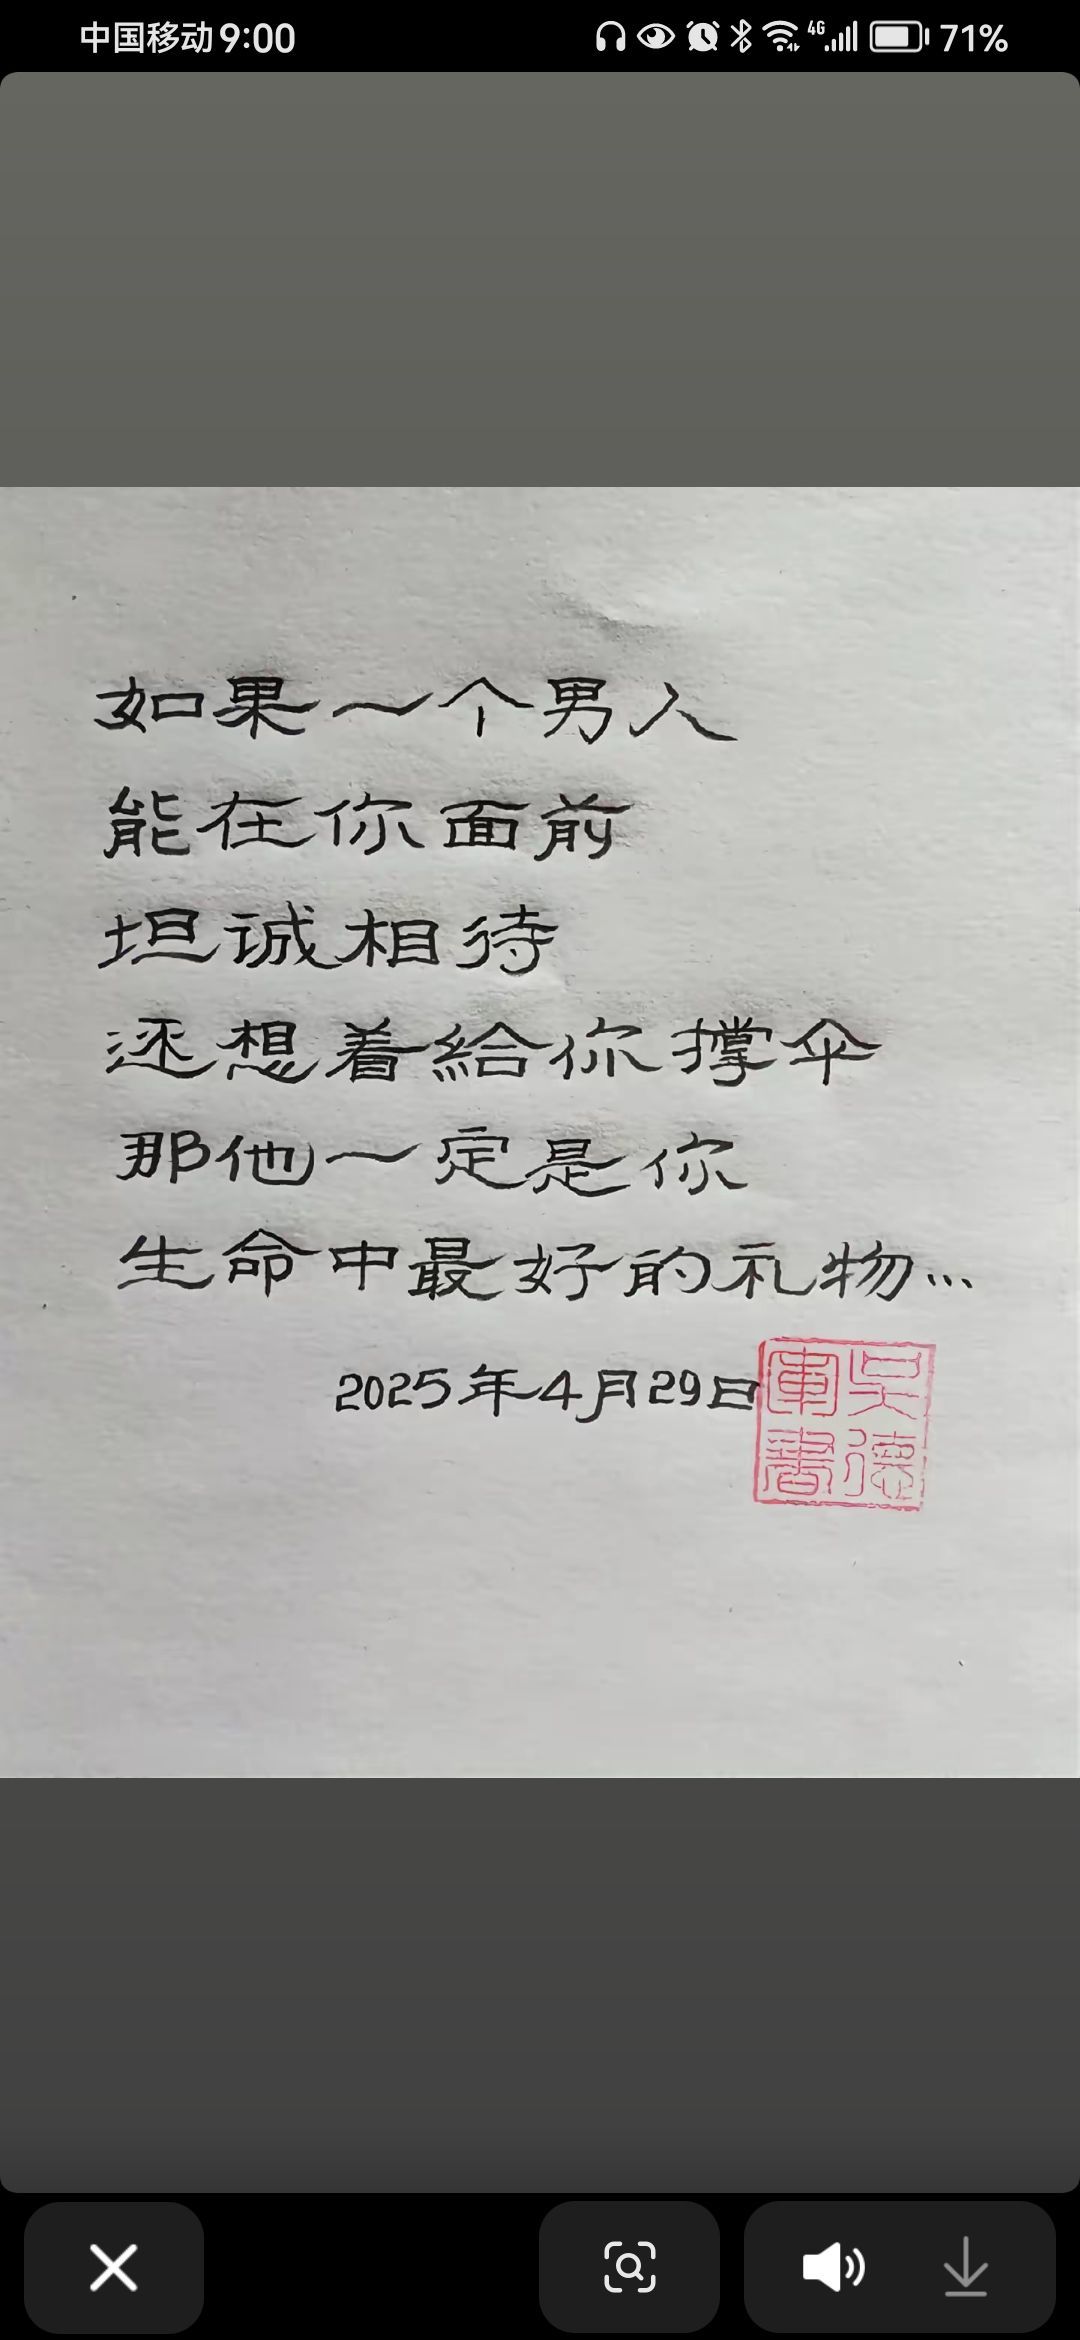 中国移动 9:00 4G 71%
如果一个男人
能在你面前
坦诚相待
还想着給你撑伞
那他一定是你
生命中最好的礼物…
2025年4月29日
吴德
軍書